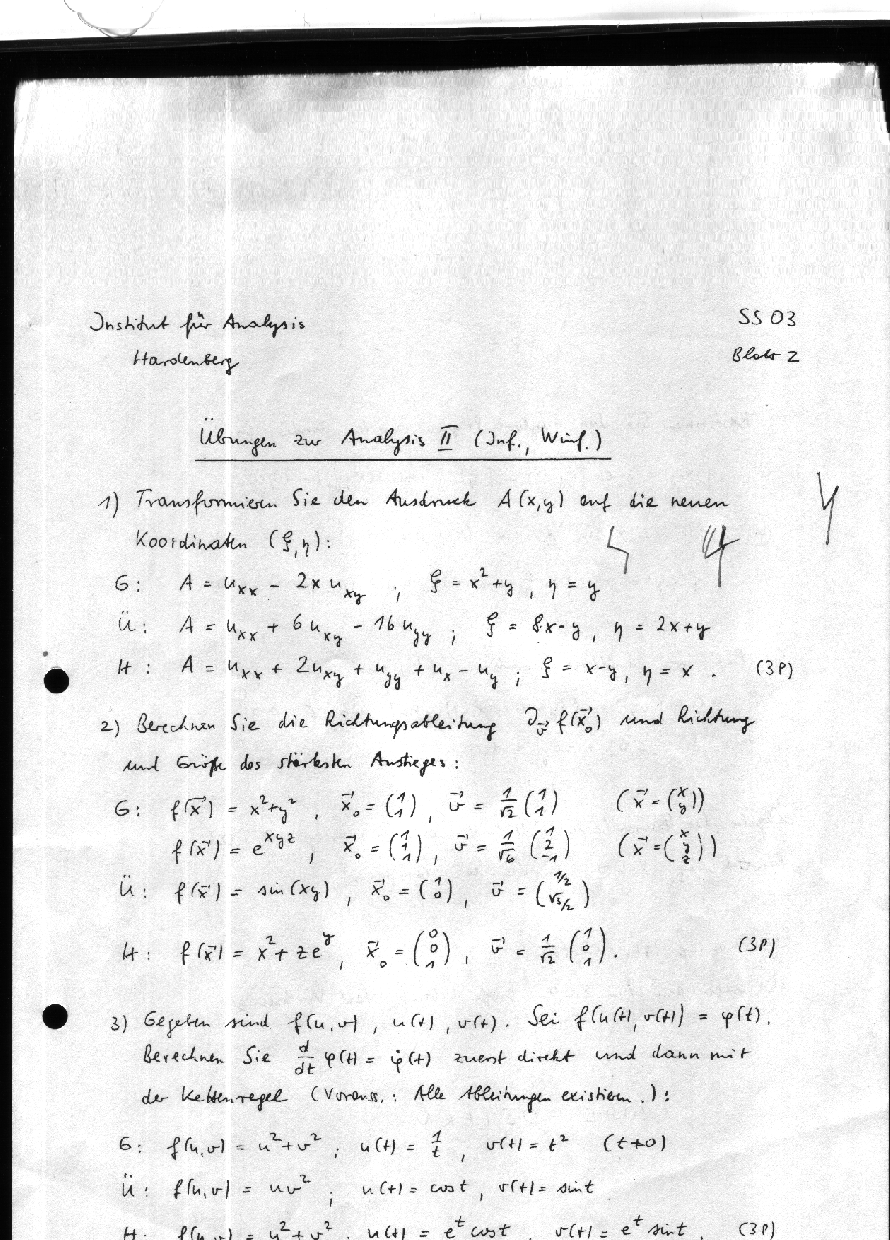 Institut für Analysis
SS 03
Hardenberg
Blatt 2
Übungen zur Analysis II (Inf., Winf.)
1) Transformieren Sie den Ausdruck A(x,y) auf die neuen
Koordinaten (ξ,η):
G: A = u_xx - 2x u_xy ; ξ = x²+y, η = y
Ü: A = u_xx + 6u_xy - 16u_yy ; ξ = 8x-y, η = 2x+y
H: A = u_xx + 2u_xy + u_yy + u_x - u_y ; ξ = x-y, η = x . (3P)
2) Berechnen Sie die Richtungsableitung ∂_v⃗ f(x⃗₀) und Richtung
und Größe des stärksten Anstieges:
G: f(x⃗) = x²+y², x⃗₀ = (1 1), v⃗ = 1/√2 (1 1) (x⃗ = (x y))
f(x⃗) = e^xyz, x⃗₀ = (1 1 1), v⃗ = 1/√6 (1 2 -1) (x⃗ = (x y z))
Ü: f(x⃗) = sin(xy), x⃗₀ = (1 0), v⃗ = (1/2 √3/2)
H: f(x⃗) = x² + ze^y, x⃗₀ = (0 0 1), v⃗ = 1/√2 (1 0 1). (3P)
3) Gegeben sind f(u,v), u(t), v(t). Sei f(u(t),v(t)) = φ(t).
Berechnen Sie d/dt φ(t) = φ̇(t) zuerst direkt und dann mit
der Kettenregel (Vorauss.: Alle Ableitungen existieren.):
G: f(u,v) = u²+v² ; u(t) = 1/t, v(t) = t² (t≠0)
Ü: f(u,v) = uv² ; u(t) = cos t, v(t) = sin t
H: f(u,v) = u²+v², u(t) = e^t cos t, v(t) = e^t sin t. (3P)